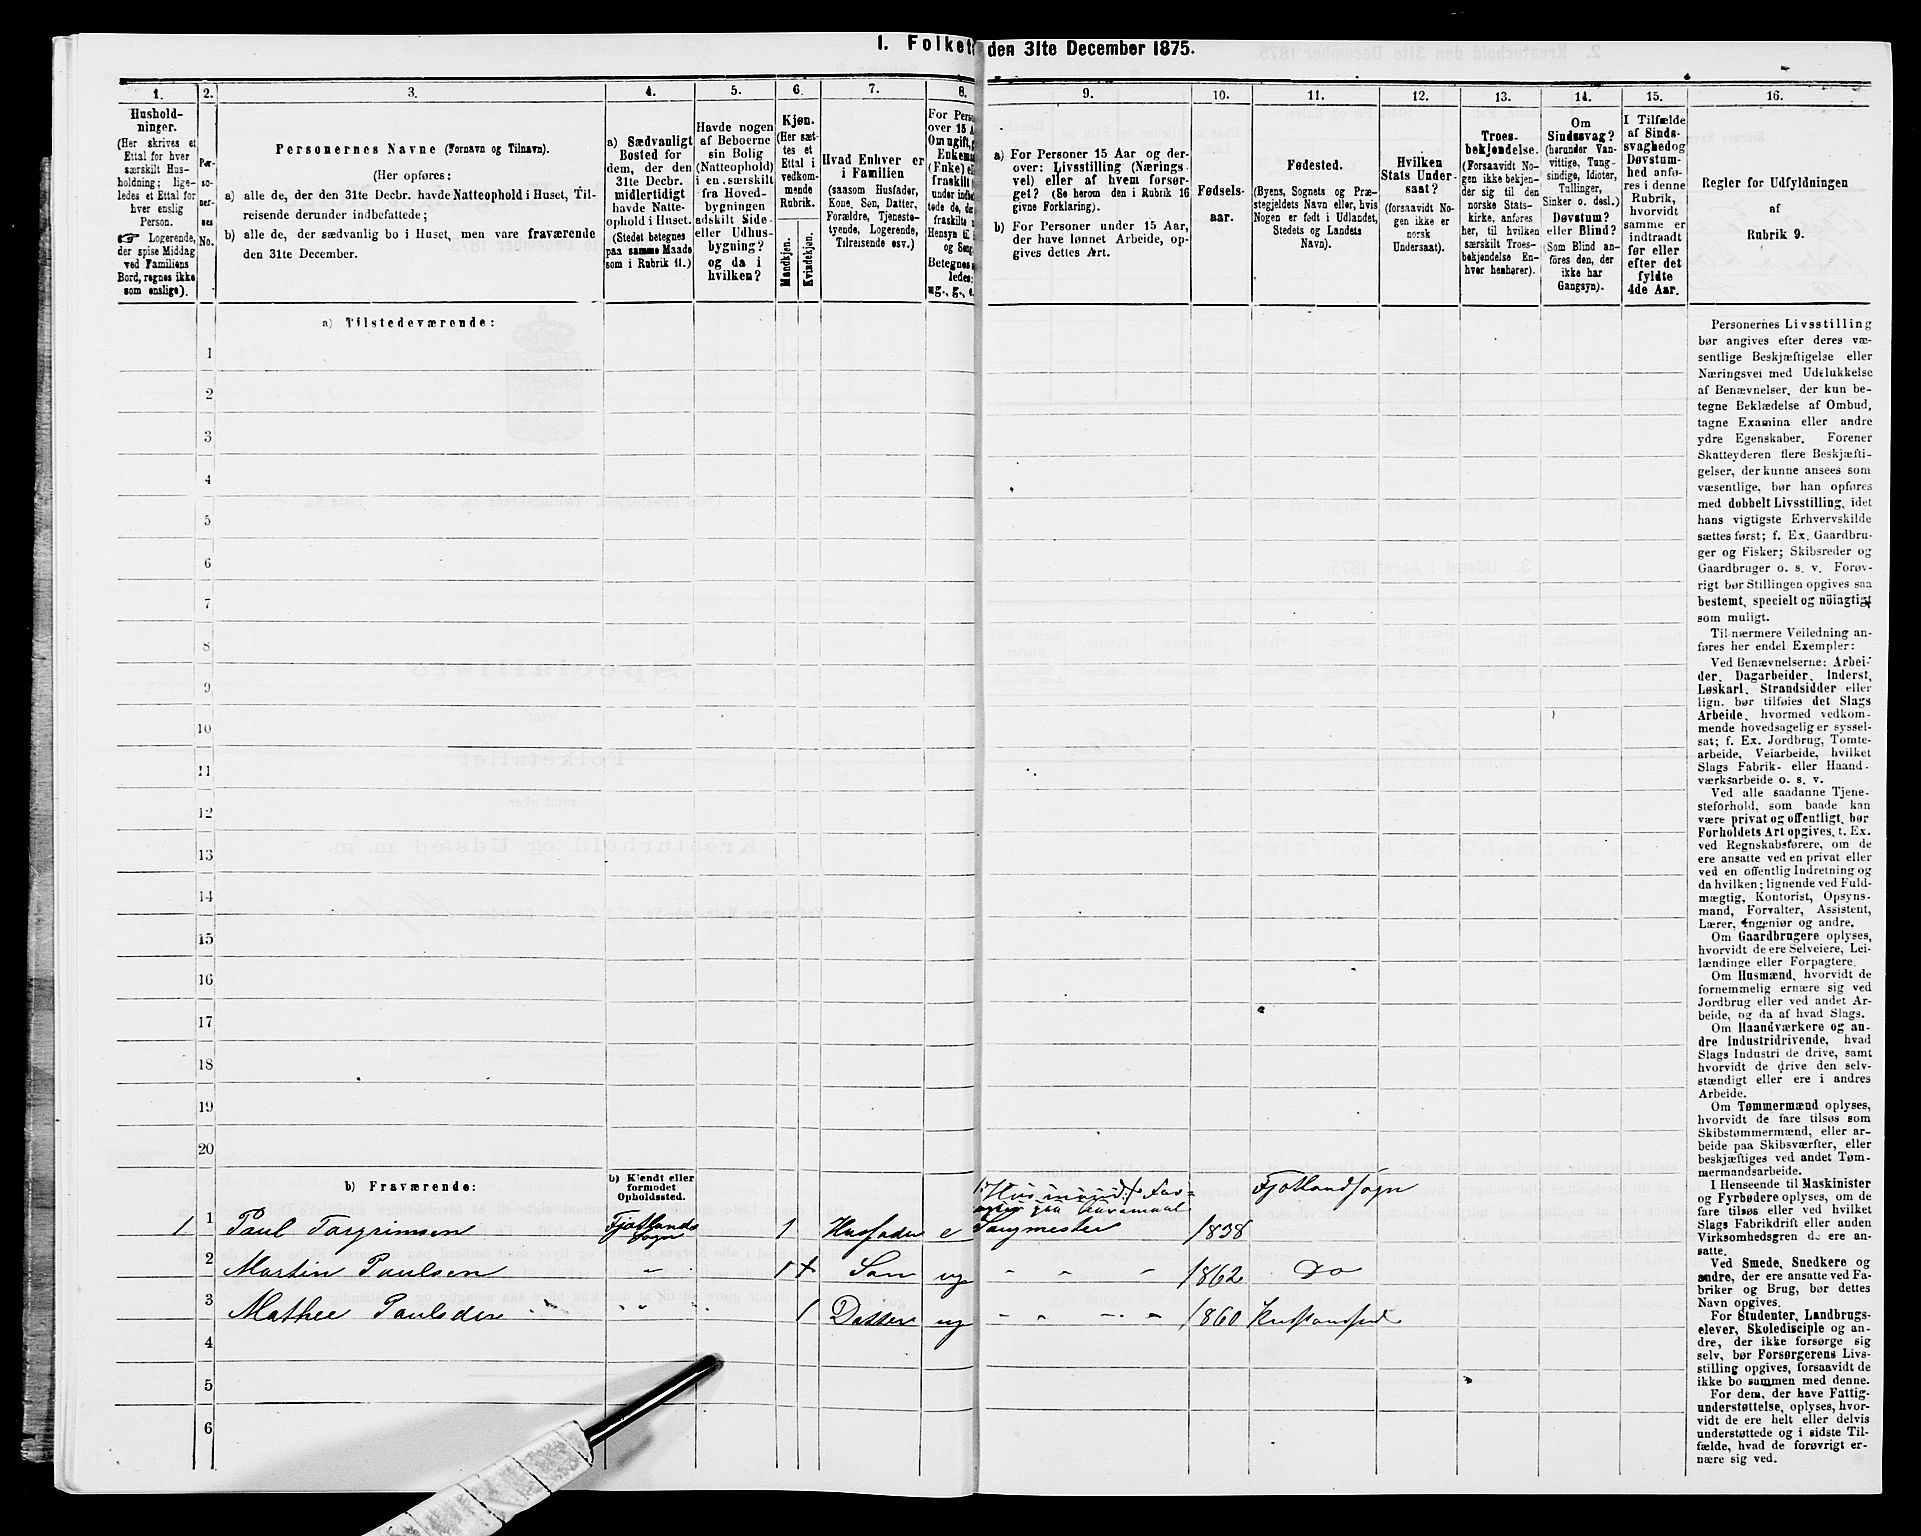 1. Folket den 31te December 1875.
1. 2. 3. 4. 5. 6. 7. 8. 9. 10. 11. 12. 13. 14. 15. 16.
Hushold-
ninger.
(Her skrives et
Ettal for hver
særskilt Hus-
holdning; lige-
ledes et Ettal for
hver enslig
Person.
☞ Logerende,
der spise Middag
ved Familiens
Bord, regnes ikke
som enslige).
Per-
so-
ner-
nes
No.
Personernes Navne (Fornavn og Tilnavn).
(Her opføres:
a) alle de, der den 31te Decbr. havde Natteophold i Huset, Til-
reisende derunder indbefattede;
b) alle de, der sædvanlig bo i Huset, men vare fraværende
den 31te December.
a) Sædvanligt
Bosted for
dem, der den
31te Decbr.
midlertidigt
havde Natte-
ophold i Huset.
(Stedet betegnes
paa samme Maade
som i Rubrik 11.)
Havde nogen
af Beboerne
sin Bolig
(Natteophold)
i en særskilt
fra Hoved-
bygningen
adskilt Side-
eller Udhus-
bygning?
og da i
hvilken?
Kjøn.
(Her sæt-
tes et
Ettal i
vedkom-
mende
Rubrik.
Mandkjøn.
Kvindekjøn.
Hvad Enhver er
i Familien
(saasom Husfader,
Kone, Søn, Datter,
Forældre, Tjeneste-
tyende, Logerende,
Tilreisende osv.)
For Pers
over 15 A
Om ugift, g
Enkema
(Enke) el
fraskilt
under indbe
tede de, de
fraskilte
Hensyn ti
og Seng
Betegnes
ledes:
ug., g., e.
a) For Personer 15 Aar og der-
over: Livsstilling (Nærings-
vei) eller af hvem forsør-
get? (Se herom den i Rubrik 16
givne Forklaring).
b) For Personer under 15 Aar,
der have lønnet Arbeide, op-
gives dettes Art.
Fødsels-
aar.
Fødested.
(Byens, Sognets og Præ-
stegjeldets Navn eller, hvis
Nogen er født i Udlandet,
Stedets og Landets
Navn).
Hvilken
Stats Under-
saat?
(forsaavidt No-
gen ikke er
norsk
Undersaat).
Troes-
bekjendelse.
(Forsaavidt No-
gen ikke bekjen-
der sig til den
norske Stats-
kirke, anføres
her, til hvilken
særskilt Troes-
bekjendelse En-
hver henhører).
Om
Sindssvag?
(herunder Van-
vittige, Tung-
sindige, Idioter,
Tullinger,
Sinker o. desl.)
Døvstum?
eller Blind?
(Som Blind an-
føres den, der
ikke har
Gangsyn).
I Tilfælde
af Sinds-
svaghed og
Døvstum-
hed anfø-
res i denne
Rubrik,
hvorvidt
samme er
indtraadt
før eller
efter det
fyldte
4de Aar.
Regler for Udfyldningen
af
Rubrik 9.
a) Tilstedeværende:
1
2
3
4
5
6
7
8
9
10
11
12
13
14
15
16
17
18
19
20
b) Fraværende:
b) Kjendt eller
formodet
Opholdssted.
Fjotlandsogn
1 1 Paul Torgrimsen Fjotlands sogn 1 Husfader e Sangmester 1838
2 Martin Paulsen " 1 + Søn ug " " " 1862 Do
3 Mathee Paulsdtr " " 1 Datter ug " " " " 1860 Kristiansand
4
5
6
Personernes Livsstilling
bør angives efter deres væ-
sentlige Beskjæftigelse eller
Næringsvei med Udelukkelse
af Benævnelser, der kun be-
tegne Beklædelse af Ombud,
tagne Examina eller andre
ydre Egenskaber. Forener
Skatteyderen flere Beskjæfti-
gelser, der kunne ansees som
væsentlige, bør han opføres
med dobbelt Livsstilling, idet
hans vigtigste Erhvervskilde
sættes først; f. Ex. Gaardbru-
ger og Fisker; Skibsreder og
Gaardbruger o. s. v. Forøv-
rigt bør Stillingen opgives saa
bestemt, specielt og nöiagtigt
som muligt.
Til nærmere Veiledning an-
føres her endel Exempler:
Ved Benævnelserne: Arbei-
der, Dagarbeider, Inderst,
Løskarl, Strandsidder eller
lign. bør tilføies det Slags
Arbeide, hvormed vedkom-
mende hovedsagelig er syssel-
sat; f. Ex. Jordbrug, Tomte-
arbeide, Veiarbeide, hvilket
Slags Fabrik- eller Haand-
værksarbeide o. s. v.
Ved alle saadanne Tjene-
steforhold, som baade kan
være privat og offentligt, bør
Forholdets Art opgives, t. Ex.
ved Regnskabsførere, om de
ere ansatte ved en privat eller
ved en offentlig Indretning og
da hvilken; lignende ved Fuld-
mægtig, Kontorist, Opsyns-
mand, Forvalter, Assistent,
Lærer, Ingeniør og andre.
Om Gaardbrugere oplyses,
hvorvidt de ere Selveiere, Lei-
lændinge eller Forpagtere.
Om Husmænd, hvorvidt de
fornemmelig ernære sig ved
Jordbrug eller ved andet Ar-
beide, og da af hvad Slags.
Om Haandværkere og an-
dre Industridrivende, hvad
Slags Industri de drive, samt
hvorvidt de drive den selv-
stændigt eller ere i andres
Arbeide.
Om Tømmermænd oplyses,
hvorvidt de fare tilsøs som
Skibstømmermænd, eller ar-
beide paa Skibsværfter, eller
beskjæftiges ved andet Tøm-
mermandsarbeide.
I Henseende til Maskinister
og Fyrbødere oplyses, om de
fare tilsøs eller ved hvilket
Slags Fabrikdrift eller anden
Virksomhedsgren de ere an-
satte.
Ved Smede, Snedkere og
andre, der ere ansatte ved Fa-
briker og Brug, bør dettes
Navn opgives.
For Studenter, Landbrugs-
elever, Skoledisciple og an-
dre, der ikke forsørge sig
selv, bør Forsørgerens Livs-
stilling opgives, forsaavidt de
ikke bo sammen med denne.
For dem, der have Fattig-
understøttelse, oplyses, hvor-
vidt de ere helt eller delvis
understøttede og i sidste Til-
fælde, hvad de forøvrigt er-
nære sig ved.